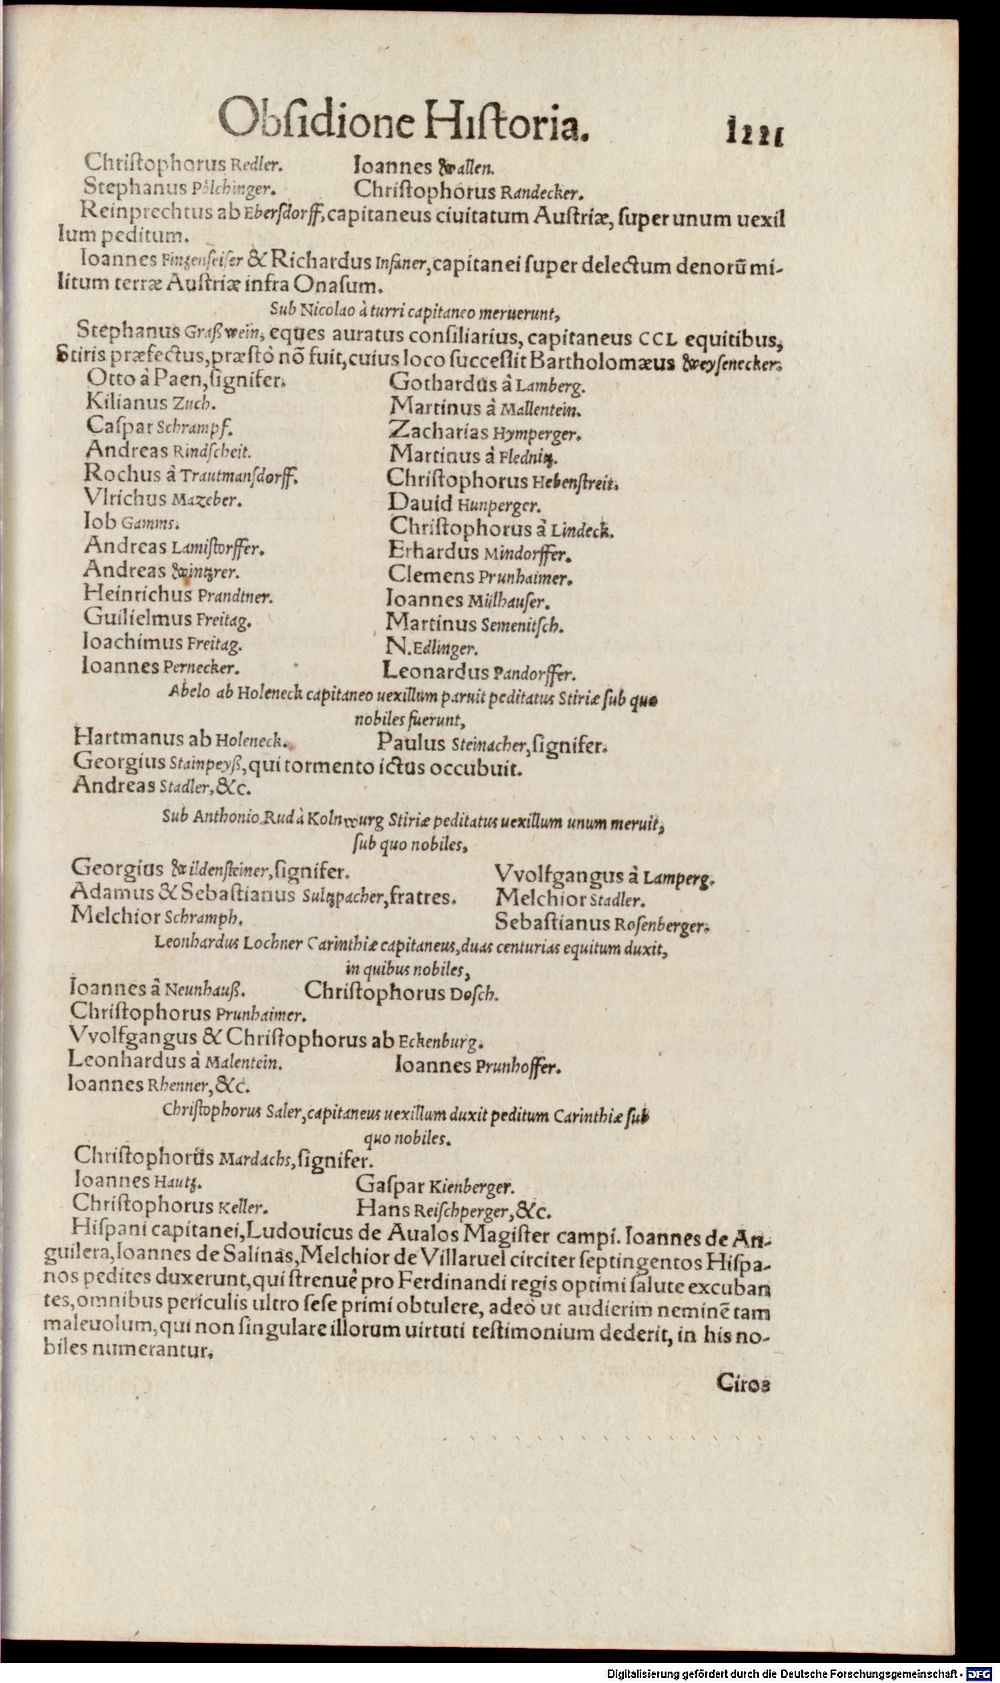 Obsidione Historia. 1221
Christophorus Redler. Ioannes Wallen.
Stephanus Pölchinger. Christophorus Randecker.
Reinprechtus ab Ebersdorff, capitaneus ciuitatum Austriæ, super unum uexil
lum peditum.
Ioannes Finzenseiser & Richardus Insaner, capitanei super delectum denorũ mi-
litum terræ Austriæ infra Onasum.
Sub Nicolao à turri capitaneo meruerunt,
Stephanus Graßwein, eques auratus consiliarius, capitaneus CCL equitibus,
Stiris præfectus, præsto nõ fuit, cuius loco successit Bartholomæus Weysenecker.
Otto à Paen, signifer. Gothardus à Lamberg.
Kilianus Zuch. Martinus à Mallentein.
Caspar Schrampf. Zacharias Hymperger.
Andreas Rindscheit. Martinus à Flednitz.
Rochus à Trautmansdorff. Christophorus Hebenstreit.
Vlrichus Mazeber. Dauid Hunperger.
Iob Gamms. Christophorus à Lindeck.
Andreas Lamistorffer. Erhardus Mindorffer.
Andreas Wintzrer. Clemens Prunhaimer.
Heinrichus Prandtner. Ioannes Mülhauser.
Guilielmus Freitag. Martinus Semenitsch.
Ioachimus Freitag. N. Edlinger.
Ioannes Pernecker. Leonardus Pandorffer.
Abelo ab Holeneck capitaneo uexillum paruit peditatus Stiriæ sub quo
nobiles fuerunt,
Hartmanus ab Holeneck. Paulus Steinacher, signifer.
Georgius Stainpeyß, qui tormento ictus occubuit.
Andreas Stadler, &c.
Sub Anthonio Rud à Kolnwurg Stiriæ peditatus uexillum unum meruit,
sub quo nobiles,
Georgius Wildensteiner, signifer. Vvolfgangus à Lamperg.
Adamus & Sebastianus Sultzpacher, fratres. Melchior Stadler.
Melchior Schramph. Sebastianus Rosenberger.
Leonhardus Lochner Carinthiæ capitaneus, duas centurias equitum duxit,
in quibus nobiles,
Ioannes à Neunhauß. Christophorus Dosch.
Christophorus Prunhaimer.
Vvolfgangus & Christophorus ab Eckenburg.
Leonhardus à Malentein. Ioannes Prunhoffer.
Ioannes Rhenner, &c.
Christophorus Saler, capitaneus uexillum duxit peditum Carinthiæ sub
quo nobiles.
Christophorus Mardachs, signifer.
Ioannes Hautz. Gaspar Kienberger.
Christophorus Keller. Hans Reischperger, &c.
Hispani capitanei, Ludouicus de Aualos Magister campi. Ioannes de An-
guilera, Ioannes de Salinas, Melchior de Villaruel circiter septingentos Hispa-
nos pedites duxerunt, qui strenuè pro Ferdinandi regis optimi salute excuban
tes, omnibus periculis ultro sese primi obtulere, adeò ut audierim neminẽ tam
maleuolum, qui non singulare illorum uirtuti testimonium dederit, in his no-
biles numerantur.
Ciros
Digitalisierung gefördert durch die Deutsche Forschungsgemeinschaft - DFG